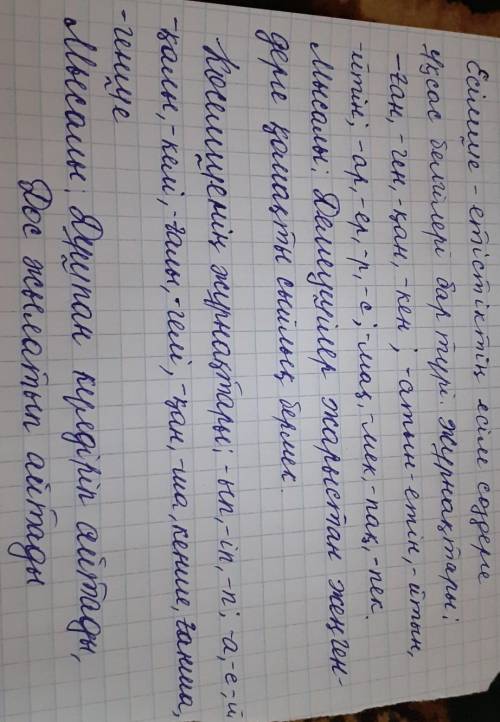 Есімше - етістіктің есім сөздерге
ұқсас белгілері бар түрі. Жұрнақтары;
-ған, -ген, -қан, -кен; -атын-етін, -йтын,
-йтін; -ар, -ер, -р, -с; -мақ, -мек, -пақ, -пек.
Мысалы: жарыстан жеңген-
дерге қомақты сыйлық бермек.
Көсемшенің жұрнақтары; -ып, -іп, -п; -а, -е, -й
-қалы, -келі, -ғалы, -гелі, -қан, -ша, кенше, ғанша,
-генше
Мысалы: Дұшпан күлдіріп айтады,
Дос жылатып айтады